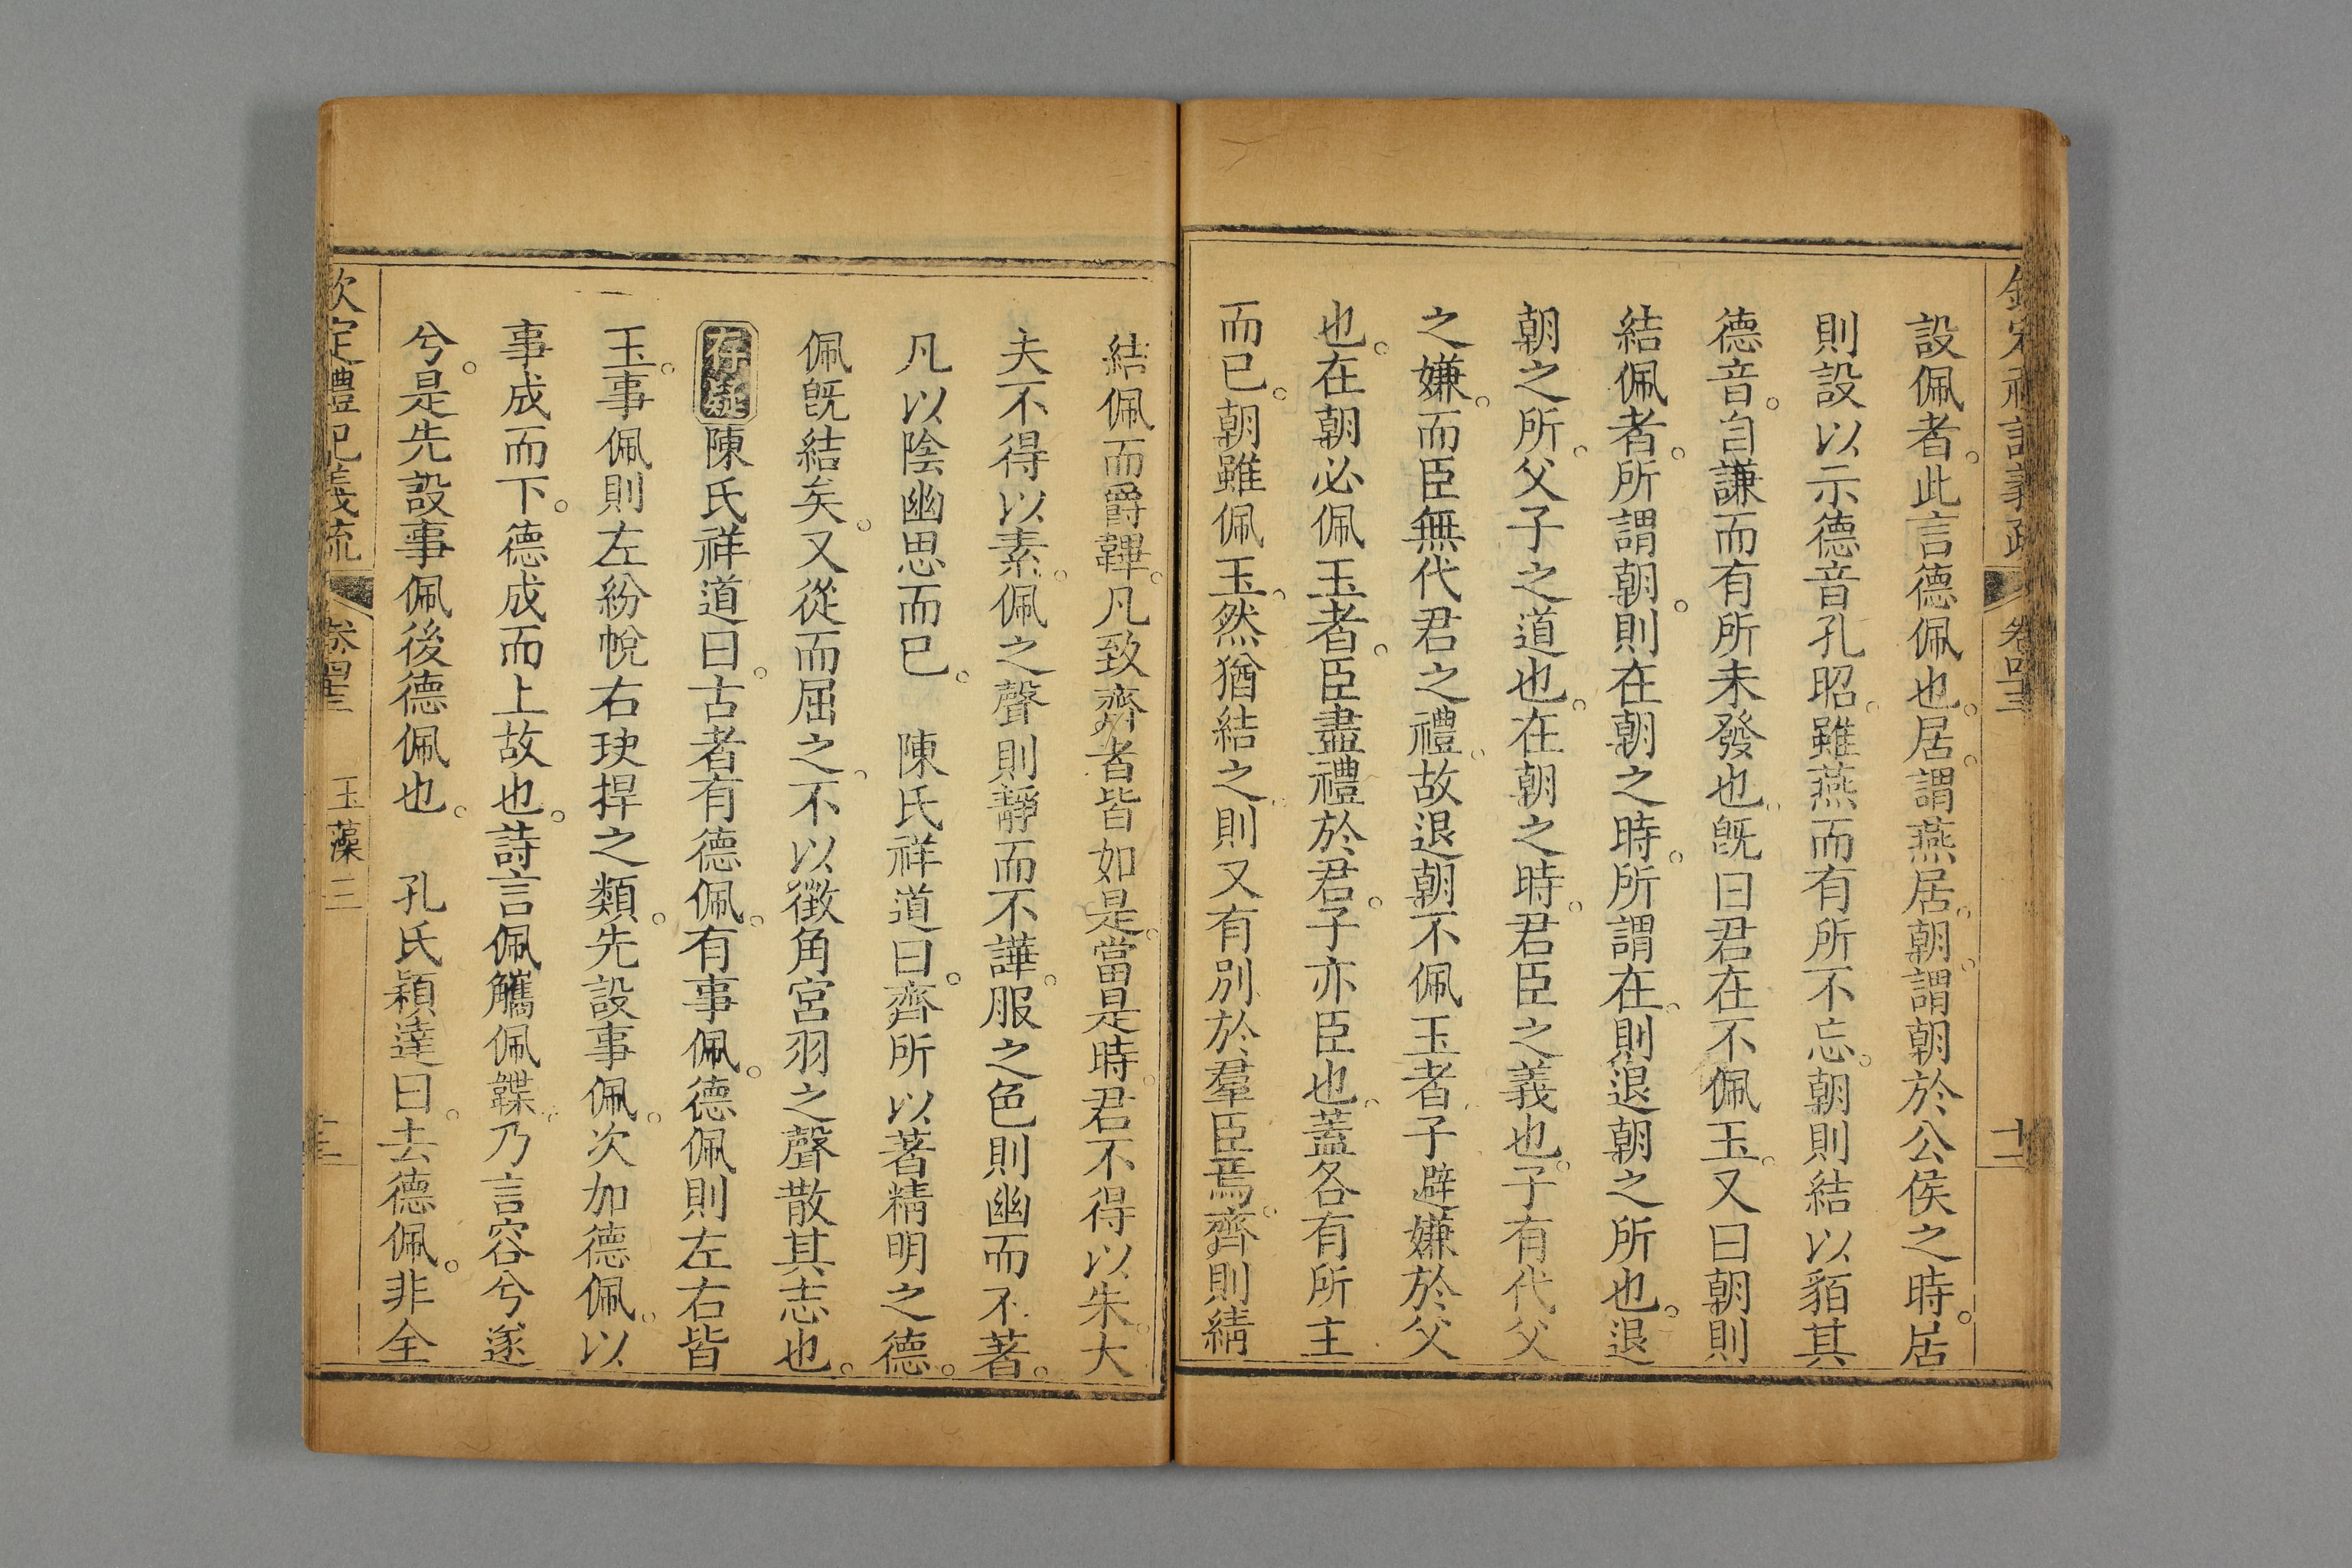 設佩者。此言德佩也。居。謂燕居。朝。謂朝於公侯之時。居
則設以示德音孔昭。雖燕而有所不忘。朝則結以貊其
德音。自謙而有所未發也。既曰君在不佩玉。又曰朝則
結佩者。所謂朝。則在朝之時。所謂在。則退朝之所也。退
朝之所。父子之道也。在朝之時。君臣之義也。子有代父
之嫌。而臣無代君之禮。故退朝不佩玉者。子避嫌於父
也。在朝必佩玉者。臣盡禮於君。子亦臣也。蓋各有所主
而已。朝雖佩玉。然猶結之。則又有別於羣臣焉。齊則綪
結佩而爵韠。凡致齊者皆如是。當是時。君不得以朱。大
夫不得以素。佩之聲則靜而不譁。服之色則幽而不著。
凡以陰幽思而已。 陳氏祥道曰。齊所以著精明之德。
佩既結矣。又從而屈之。不以徵角宮羽之聲散其志也。
存疑 陳氏祥道曰。古者有德佩。有事佩。德佩則左右皆
玉。事佩則左紛帨右玦捍之類。先設事佩。次加德佩。以
事成而下。德成而上故也。詩言佩觿佩韘。乃言容兮遂
兮。是先設事佩後德佩也。 孔氏穎達曰。去德佩。非全
欽定禮記義疏 卷四十三 玉藻三